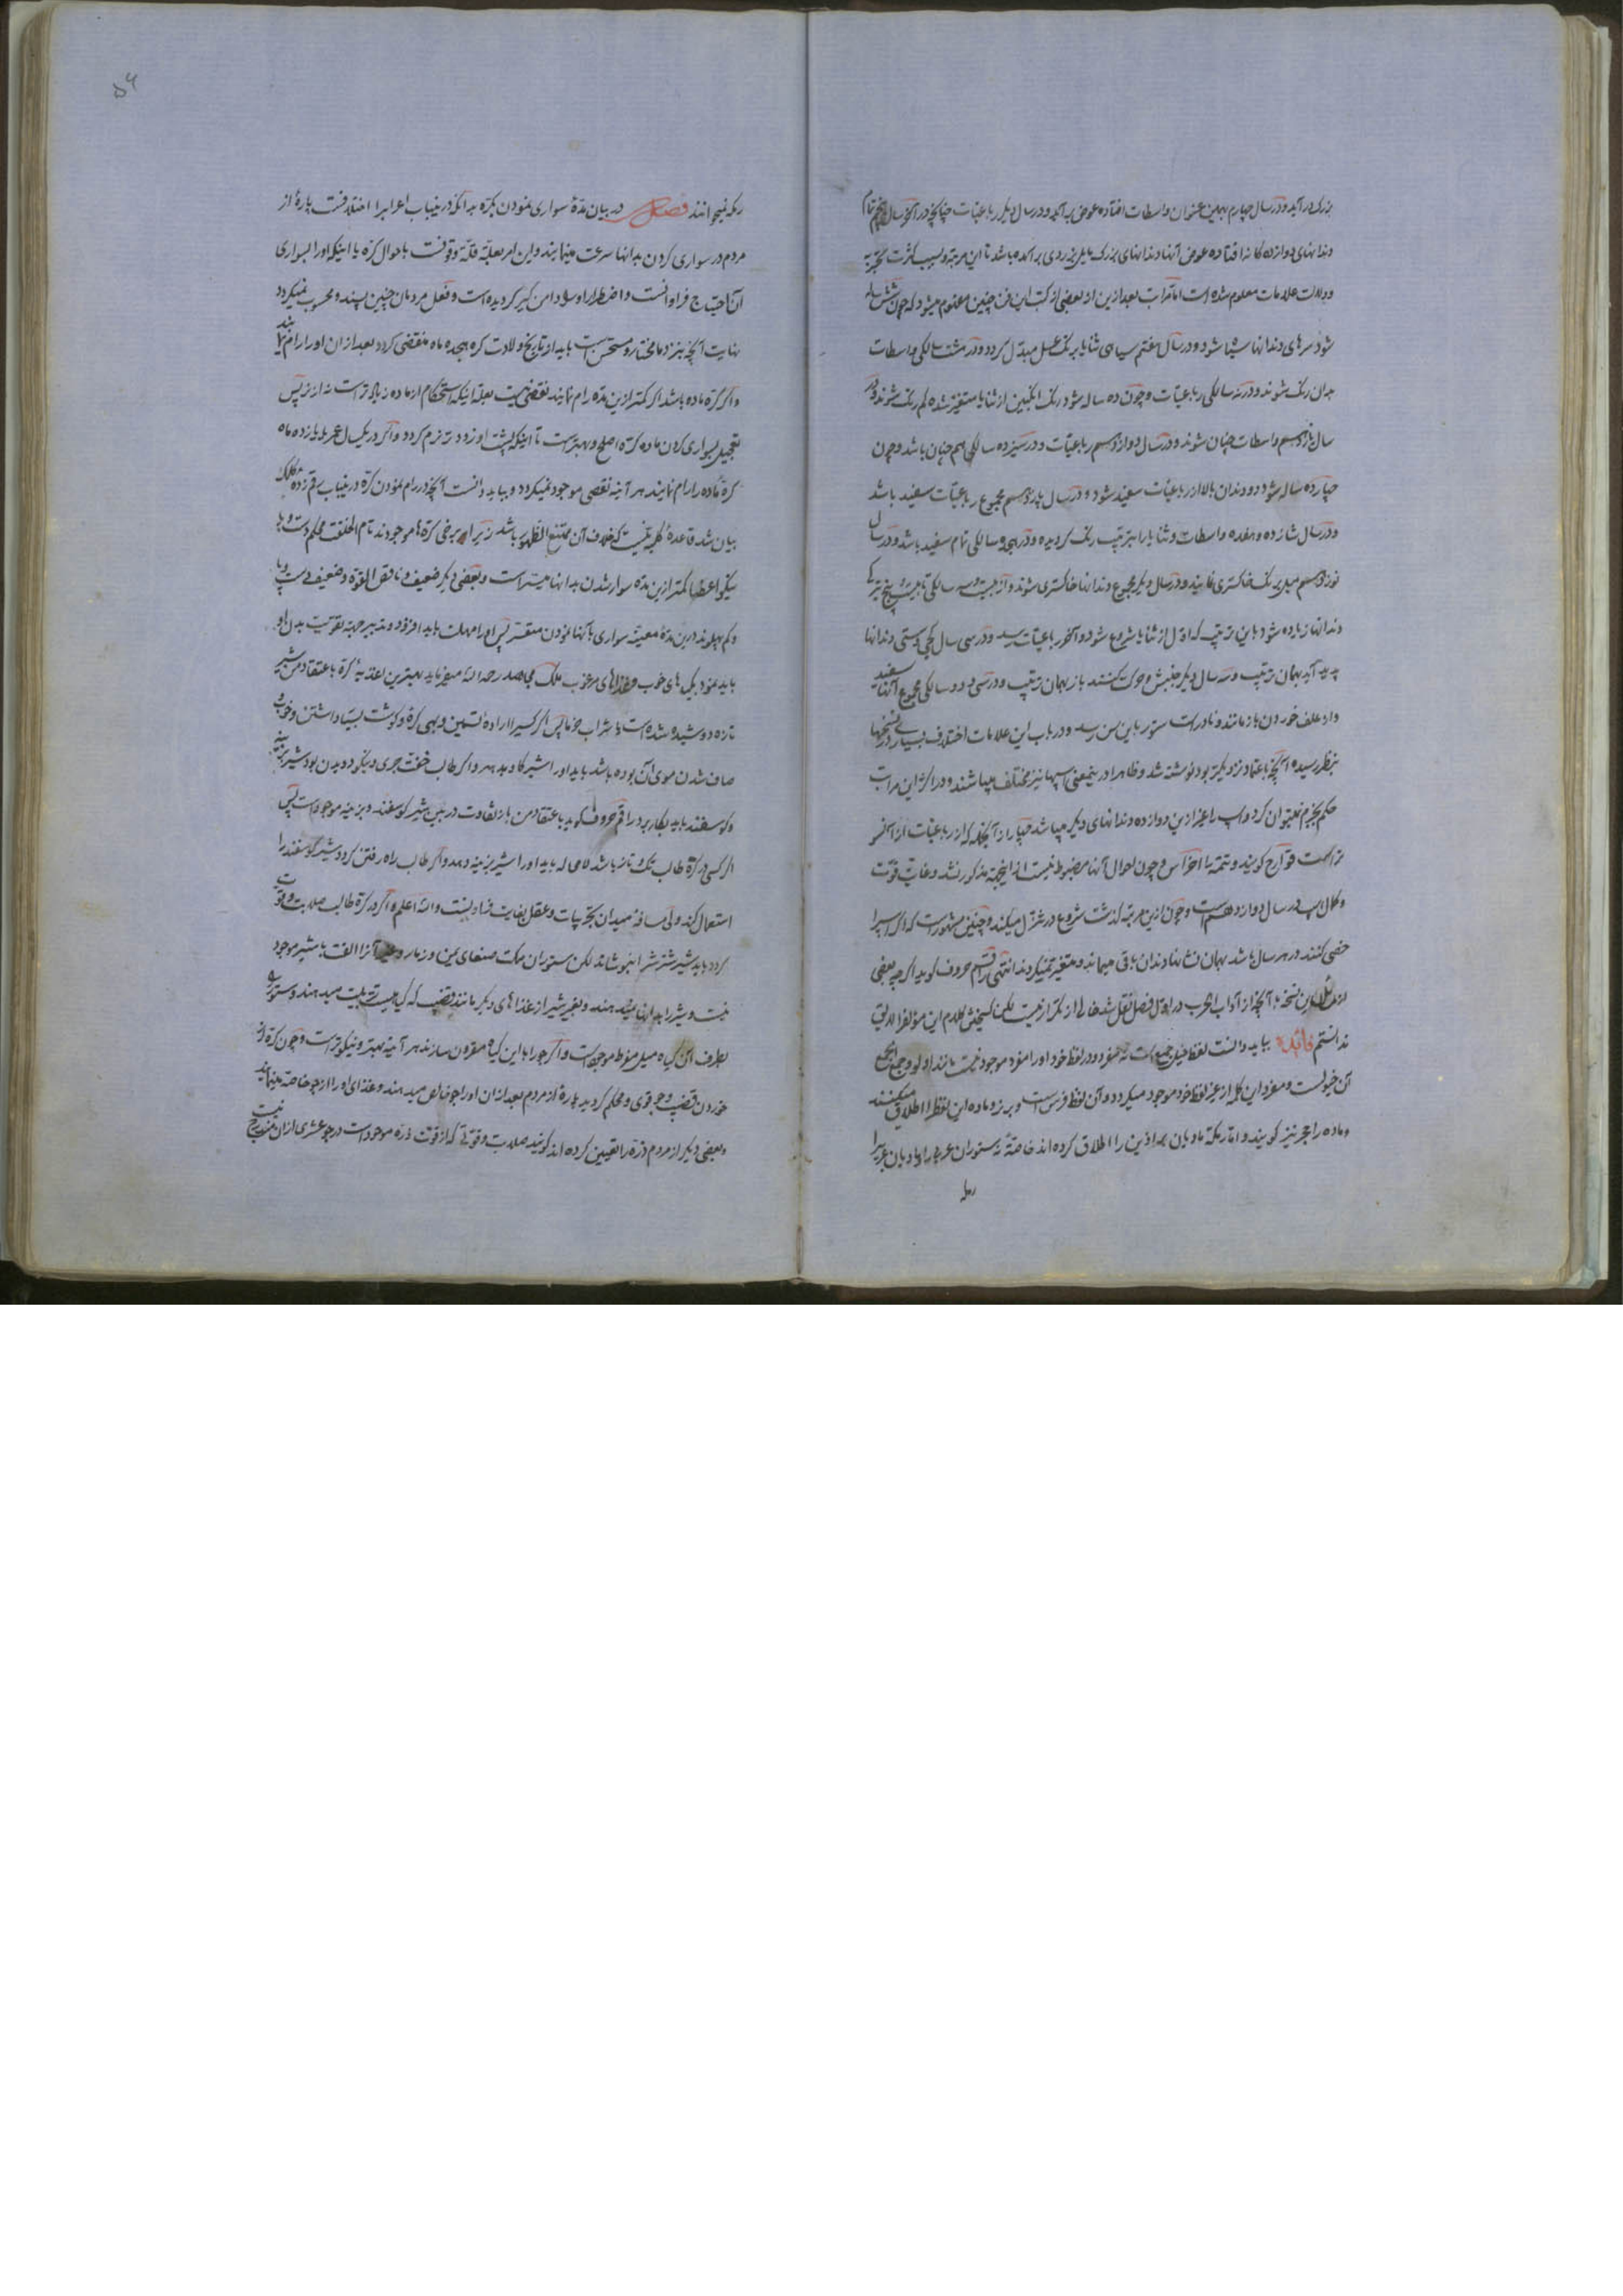 بزرک در آید و در سال چهارم بهمین عنوان واسطات افتاده عوض برآید و در سال دیکر رباعیات چنانچه در آخر سال پنجم تمام
دندانهای دوازده کانه افتاده عوض آنها دندانهای بزرک مایل بزردی برآمده باشد تا این مرتبه و بسبب کثرت تجربه
و دلالت علامات معلوم شده است اما مراتب بعد ازین از بعضی از کتب این فن چنین معلوم میشود که چون شش ساله
شود سرهای دندانها سیاه شود و در سال هفتم سیاهی ثنایا برنک عسل مبدل کردد و در هشت سالکی واسطات
بدان رنک شوند و در نه سالکی رباعیات و چون ده ساله شود رنک انکبین از ثنایا متغیر شده کم رنک شوند و در
سال یازدهم واسطات چنان شوند و در سال دوازدهم رباعیات و در سیزده سالکی هم چنان باشد و چون
چهارده ساله شود دو دندان بالا از رباعیات سفید شود و در سال پانزدهم مجموع رباعیات سفید باشد
و در سال شانزده و هفده واسطات و ثنایا را بترتیب رنک کردیده و در هجده سالکی تمام سفید باشد و در سال
نوزدهم میل برنک خاکستری نمایند و در سال دیکر مجموع دندانها خاکستری شوند و از بیست و سه سالکی تا بیست و پنج تیزی
دندانها زیاده شود باین ترتیب که اول از ثنایا شروع شود و آخر برباعیات رسد و در سی سال کجی و سستی دندانها
پدید آید بهمان ترتیب و سه سال دیکر جنبش و حرکت کنند باز بهمان ترتیب و در سی و دو سالکی مجموع آنها سفید
و از علف خوردن باز مانند و نادر است ستور باین سن رسد و در باب این علامات اختلاف بسیار در نسخها
بنظر رسیده آنچه باعتماد نزدیکتر بود نوشته شد و ظاهرا در ینمعنی اسپها نیز مختلف میباشند و در اکثر این مراتب
حکم بجزم نمیتوان کرد و اسپ را غیر ازین دوازده دندانهای دیکر میباشد چهار از آنجمله که از رباعیات از آنسو
تر است قوارح کویند و تتمه را اضراس و چون احوال آنها مضبوط نیست از اینجهة مذکور نشد و غایت قوت
و کمال اسپ در سال دوازدهم است و چون ازین مرتبه کذشت شروع در تنزل میکند و چنین مشهور است که اکر اسپ را
خصی کنند در هر سال باشد بهمان نشانها دندان باقی میماند و متغیر نمیکردند انتهی راقم حروف کوید اکر چه بعضی
از نقل این نسخه با آنچه از آداب الحرب در اول فصل نقل شد خالی از تکرار نیست لکن تلخیص کلام این مؤلف را لایق
ندانستم فائدة بباید دانست لفظ خیل جمع است نه مفرد و در لفظ خود او را مفرد موجود نیست مانند اولو و جمع الجمع
آن خیولست و مفرد این کلمه از غیر لفظ خود موجود میکردد و آن لفظ فرس است و بر نر و ماده این لفظ را اطلاق میکنند
و ماده را حجر نیز کویند و اما رمکه مادیان برا ذین را اطلاق کرده اند خاصة نه ستوران عرب را و مادیان عربی را
رمکه
۵۶
رمکه نمیخوانند فصل در بیان مدة سواری نمودن بکره بدانکه در ینباب اعراب را اختلافست پارهٔ از
مردم در سواری کردن بدانها سرعت مینمایند و این امر بعلة قلة وقوفست باحوال کره یا اینکه او را بسواری
آن احتیاج فراوانست و اضطرار او را دامن کیر کردیده است و فعل مردمان چنین پسند و محسوب نمیکردد
نهایت آنچه بنزد ما مختار و مستحسن است باید از تاریخ ولادت کره هجده ماه منقضی کردد بعد از ان او را رام نمایند
و اکر کره ماده باشد اکر کمتر ازین مدة رام نمایند نقصی نیست بعلة اینکه استحکام از ماده زیادتر است نه از نر پس
تعجیل بسواری کردن ماده کره اصلح و بهتر است تا اینکه پشت او زودتر نرم کردد و اکر در یکسال عمر یا یازده ماه
کره ماده را رام نمایند هر آینه نقصی موجود نمیکردد و بباید دانست آنچه در رام نمودن کره در ینباب رقم زده کلک
بیان شد قاعدهٔ کلیه نیست که خلاف آن ممتنع الظهور باشد زیرا که برخی کره ها موجودند تام الخلقت محکم دست و پا
نیکو اعضا کمتر ازین مدة سوار شدن بدانها میسر است و بعضی دیکر ضعیف و ناقص القوة و ضعیف دست و پا
و کم پهلوند درین مدة معینه سواری بآنها نمودن متعسر پس او را مهلت باید افزود و تدبیر جهة تقویت بدن او
باید نمود بکی های خوب و غذاهای مرغوب ملک مجاهد رحمه الله میفرماید بهترین اغذیهٔ کره باعتقاد من شیر
تازه دوشیده شده است با شراب خرما پس اکر کسیرا ارادهٔ تسمین و بهی کره و کوشت بسیار داشتن و خوبی و
صاف شدن موی آن بوده باشد باید او را شیر کاو بدهد و اکر طالب خفت جری و نیکو دویدن بود شیر بزینه
و کوسفند باید بکار برد راقم حروف کوید باعتقاد من باز تفاوت در بین شیر کوسفند و بزینه موجود است پس
اکر کسی در کرة طالب تک و تاز باشد لامحاله باید او را شیر بزینه دهد و اکر طالب راه رفتن کردد شیر کوسفند را
استعمال کند ولی مسافهٔ میدان تجربیات و عقل بغایت فساد نیست والله اعلم و اکر در کرة طالب صلابت و قوت
کردد باید شیر شتر شر ابنوشاند لکن ستوران مملکت صنعای یمن و زمار و غیر آنرا الفت با شیر موجود
نیست و شیر را بدانها نمیدهند و بغیر شیر از غذاهای دیکر مانند قضیب که کیاهیست تربیت میدهند و ستور
بطرف آن کیاه میلی مفرط موجود است و اکر جو را با این کیاه مقرون سازند هر آینه بهتر و نیکوتر است و چون کره از
خوردن قضیب و جو قوی و محکم کردید پارهٔ از مردم بعد از ان او را جو خالص میدهند و غذای او را از جو خاصة مینمایند
و بعضی دیکر از مردم ذرة را تعیین کرده اند کویند صلابت و قوتی که از قوت ذرة موجود است در جو عشری از ان مندرج نیست